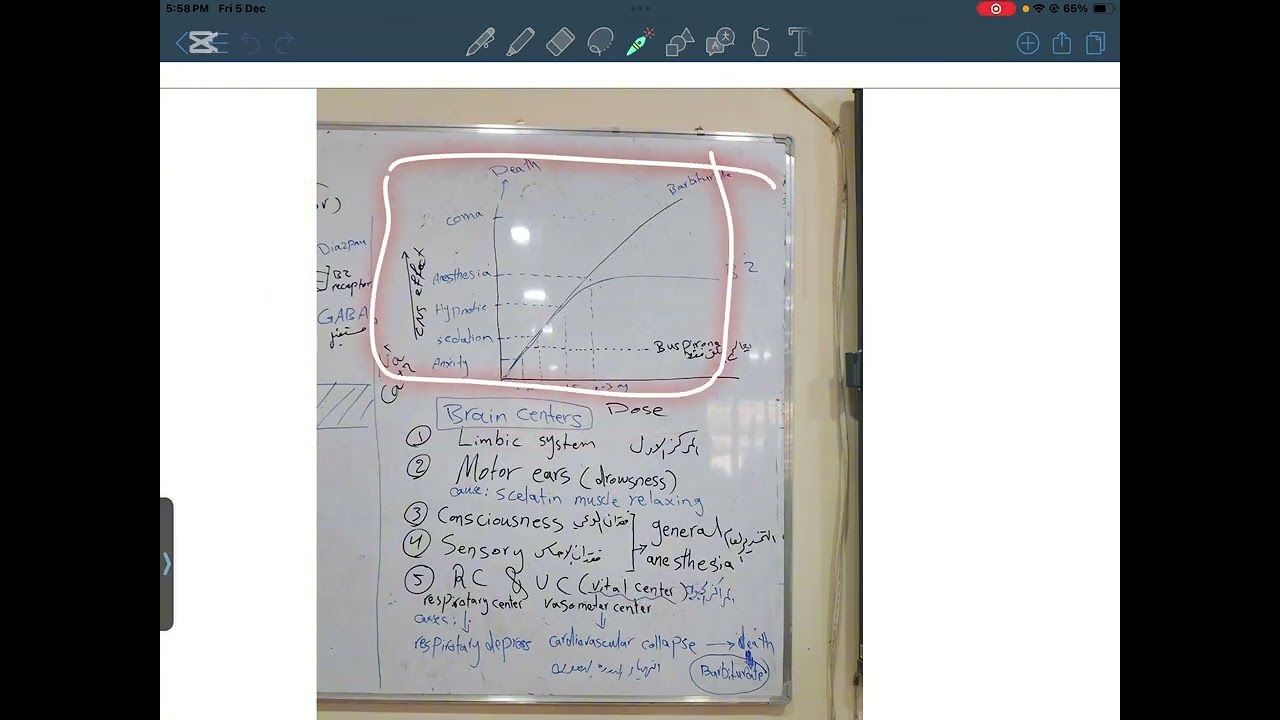 5:58 PM Fri 5 Dec
65%
Death
Barbiturate
coma
Diazpam
CNS effect
Anesthesia
BZ
BZ
receptor
Hypnotic
GABA
sedation
Buspirone
Anxity
Dose
Brain centers
① Limbic system المركز الاول
② Motor ears (drowsness)
cause: scelatin muscle relaxing
③ Consciousness فقدان الوعي
general التخدير العام
④ Sensory فقدان الاحساس
anesthesia
⑤ RC & VC (vital center)
respiratory center vasometer center
causes:
respiratory depress cardiovascular collapse → death
Barbiturate